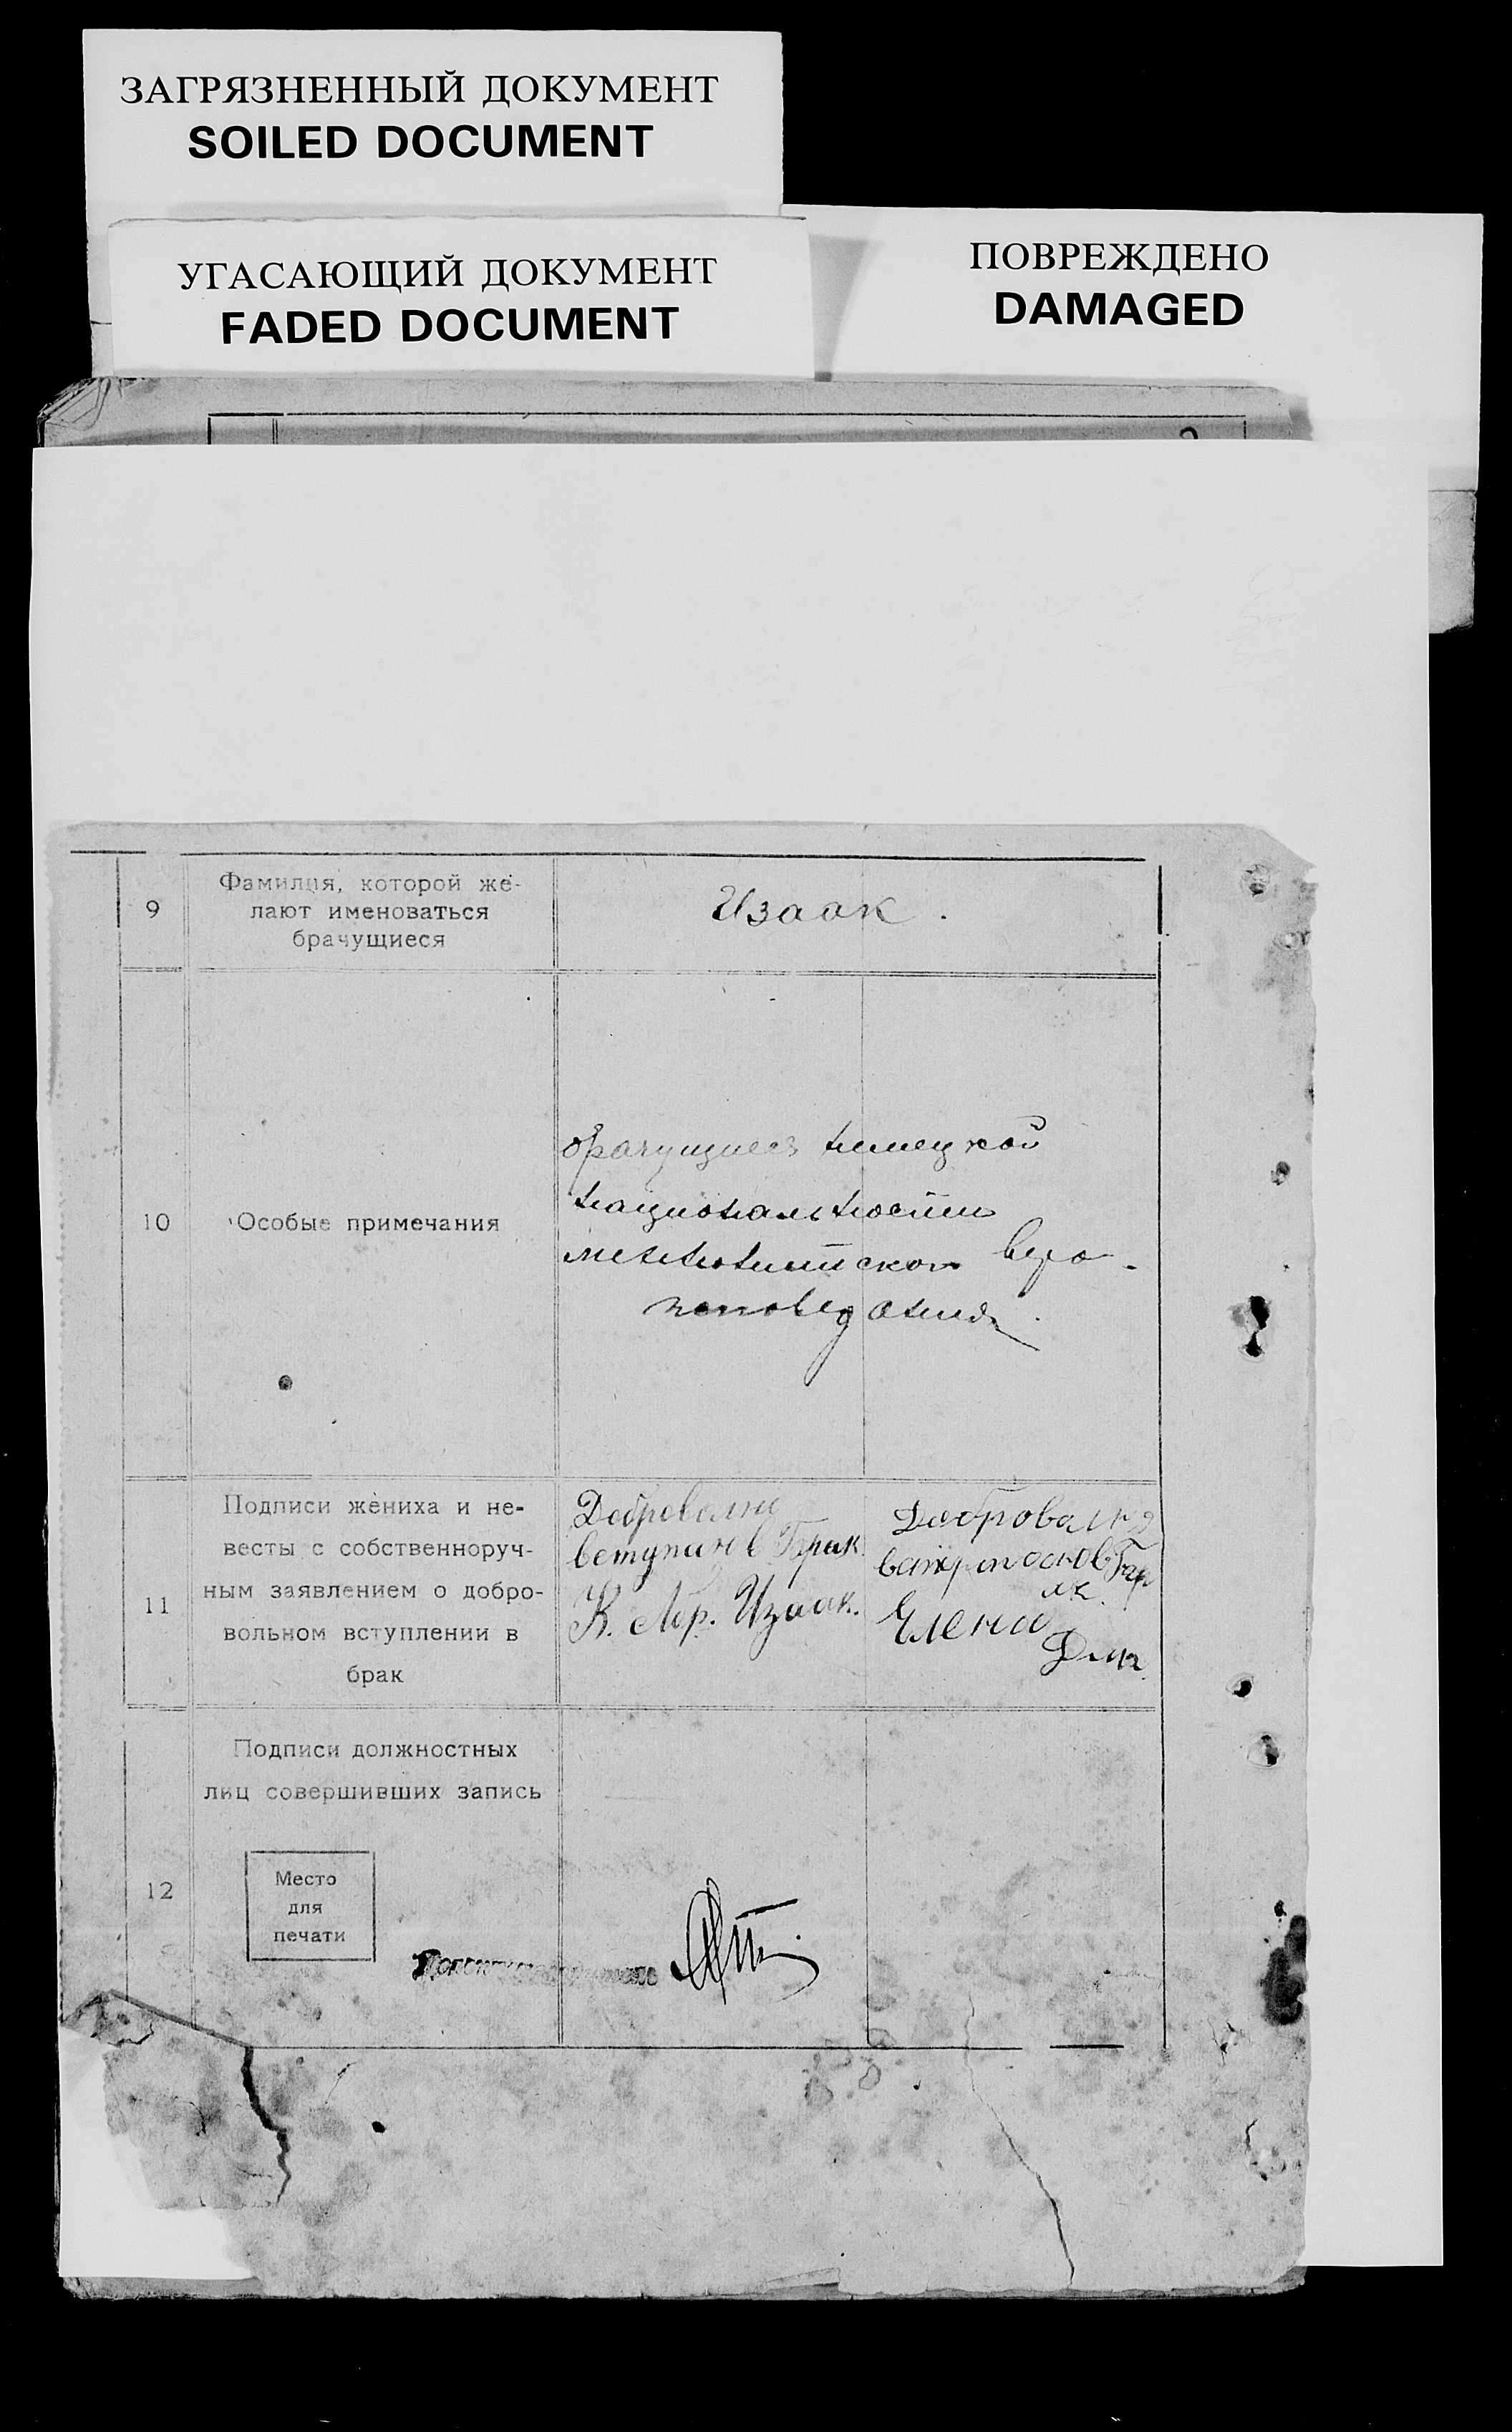 ЗАГРЯЗНЕННЫЙ ДОКУМЕНТ
SOILED DOCUMENT
УГАСАЮЩИЙ ДОКУМЕНТ
FADED DOCUMENT
ПОВРЕЖДЕНО
DAMAGED
9
Фамилия, которой же-
лают именоваться
брачущиеся
Изаак.
10
Особые примечания
брачущиеся немецкой
национальности
меннонитского веро-
исповедания.
11
Подписи жениха и не-
весты с собственноруч-
ным заявлением о добро-
вольном вступлении в
брак
Добровелно
вступаю в Брак
К. Абр. Изаак.
Добровалня
в Бра
ак.
Елена
Дик
12
Подписи должностных
лиц совершивших запись
Место
для
печати